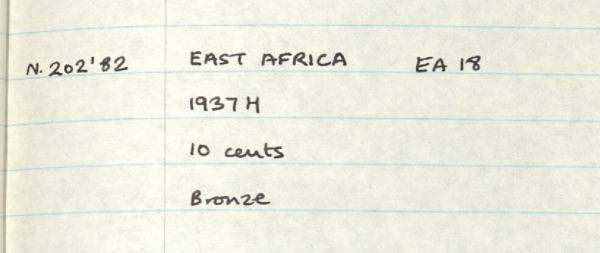 N.202'82 EAST AFRICA EA 18
1937 H
10 cents
Bronze